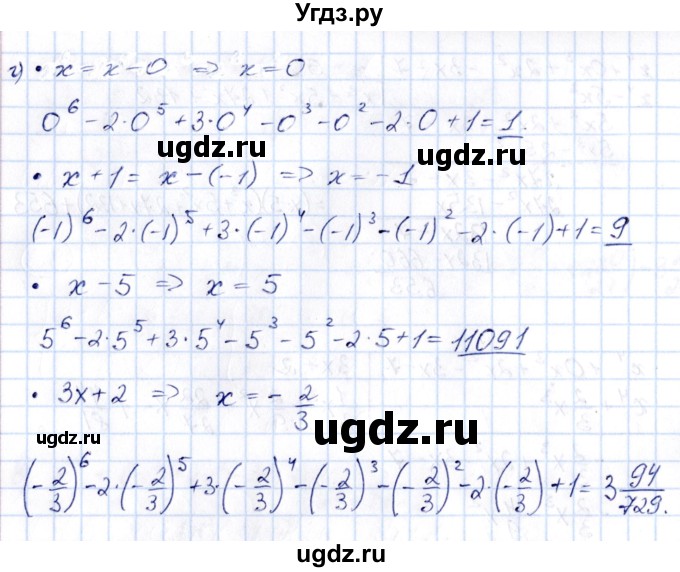 Угдз.ру
г) • x = x − 0 ⇒ x = 0
0⁶ − 2·0⁵ + 3·0⁴ − 0³ − 0² − 2·0 + 1 = 1.
ugdz.ru ugdz.ru
• x + 1 = x − (−1) ⇒ x = −1
(−1)⁶ − 2·(−1)⁵ + 3·(−1)⁴ − (−1)³ − (−1)² − 2·(−1) + 1 = 9
• x − 5 ⇒ x = 5
5⁶ − 2·5⁵ + 3·5⁴ − 5³ − 5² − 2·5 + 1 = 11091
• 3x + 2 ⇒ x = −2/3
ugdz.ru ugdz.ru
(−2/3)⁶ − 2·(−2/3)⁵ + 3·(−2/3)⁴ − (−2/3)³ − (−2/3)² − 2·(−2/3) + 1 = 3 94/729.
ugdz.ru